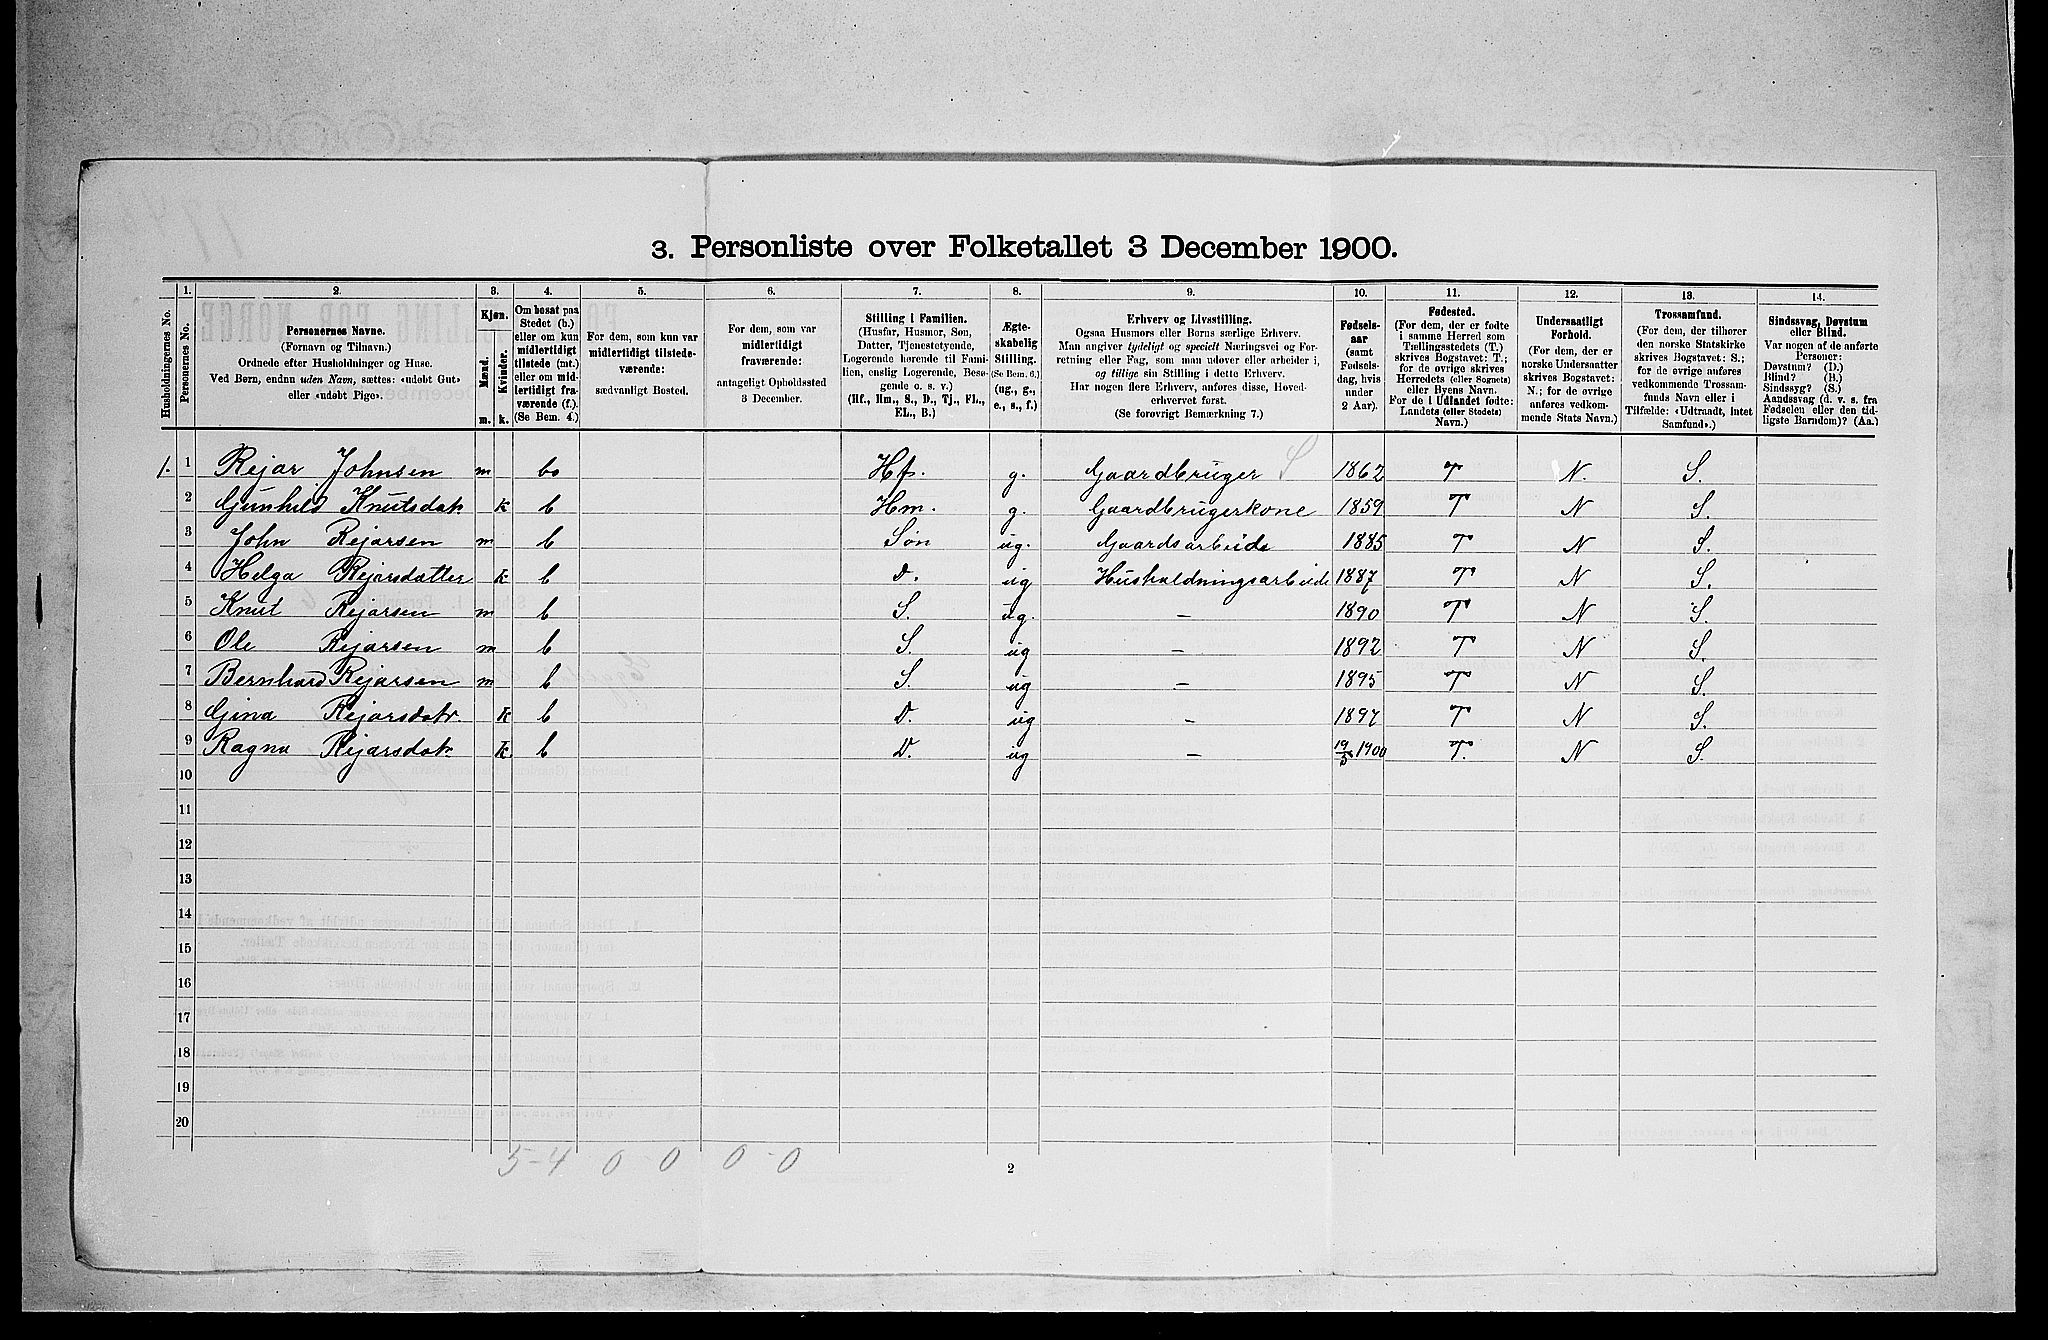 3. Personliste over Folketallet 3 December 1900.
1. 2. 3. 4. 5. 6. 7. 8. 9. 10. 11. 12. 13. 14.
Husholdningernes No.
Personernes No.
Personernes Navne.
(Fornavn og Tilnavn.)
Ordnede efter Husholdninger og Huse.
Ved Børn, endnu uden Navn, sættes: «udøbt Gut»
eller «udøbt Pige».
Kjøn.
Mænd.
Kvinder.
m. k.
Om bosat paa
Stedet (b.)
eller om kun
midlertidigt
tilstede (mt.)
eller om mid-
lertidigt fra-
værende (f.)
(Se Bem. 4.)
For dem, som kun var
midlertidigt tilstede-
værende:
sædvanligt Bosted.
For dem, som var
midlertidigt
fraværende:
antageligt Opholdssted
3 December.
Stilling i Familien.
(Husfar, Husmor, Søn,
Datter, Tjenestetyende,
Logerende hørende til Fami-
lien, enslig Logerende, Besø-
gende o. s. v.)
(Hf., Hm., S., D., Tj., Fl.,
EL., B.)
Ægte-
skabelig
Stilling.
(Se Bem. 6.)
(ug., g.,
e., s., f.)
Erhverv og Livsstilling.
Ogsaa Husmors eller Børns særlige Erhverv.
Man angiver tydeligt og specielt Næringsvei og For-
retning eller Fag, som man udover eller arbeider i,
og tillige sin Stilling i dette Erhverv.
Har nogen flere Erhverv, anføres disse, Hoved-
erhvervet først.
(Se forøvrigt Bemærkning 7.)
Fødsels-
aar
(samt
Fødsels-
dag, hvis
under
2 Aar).
Fødested.
(For dem, der er fødte
i samme Herred som
Tællingsstedets (T.)
skrives Bogstavet: T.;
for de øvrige skrives
Herredets (eller Sognets)
eller Byens Navn.
For de i Udlandet fødte:
Landets (eller Stedets)
Navn.)
Undersaatligt
Forhold.
(For dem, der er
norske Undersaatter
skrives Bogstavet:
N.; for de øvrige
anføres vedkom-
mende Stats Navn.)
Trossamfund.
(For dem, der tilhører
den norske Statskirke
skrives Bogstavet: S.;
for de øvrige anføres
vedkommende Trossam-
funds Navn eller i
Tilfælde: «Udtraadt, intet
Samfund».)
Sindssvag, Døvstum
eller Blind.
Var nogen af de anførte
Personer:
Døvstum? (D.)
Blind? (B.)
Sindssyg? (S.)
Aandssvag (d. v. s. fra
Fødselen eller den tid-
ligste Barndom)? (Aa.)
1. 1 Rejar Johnsen m b Hf. g. Gaardbruger S 1862 T N. S.
2 Gunhild Knutsdatr k b Hm. g. Gaardbrugerkone 1859 T N S.
3 John Rejarsen m b Søn ug. Gaardsarbeide 1885 T N S.
4 Helga Rejarsdatter k b D. ug Husholdningsarbeide 1887 T N S.
5 Knut Rejarsen m b S. ug. – 1890 T N S.
6 Ole Rejarsen m b S. ug – 1892 T N S.
7 Bernhard Rejarsen m b S. ug – 1895 T N S.
8 Gina Rejarsdatr. k b D. ug – 1897 T N S.
9 Ragna Rejarsdatr k. b D. ug – 19/5 1900 T. N S.
10
11
12
13
14
15
16
17
18
19
20
5-4 0-0 0-0
2